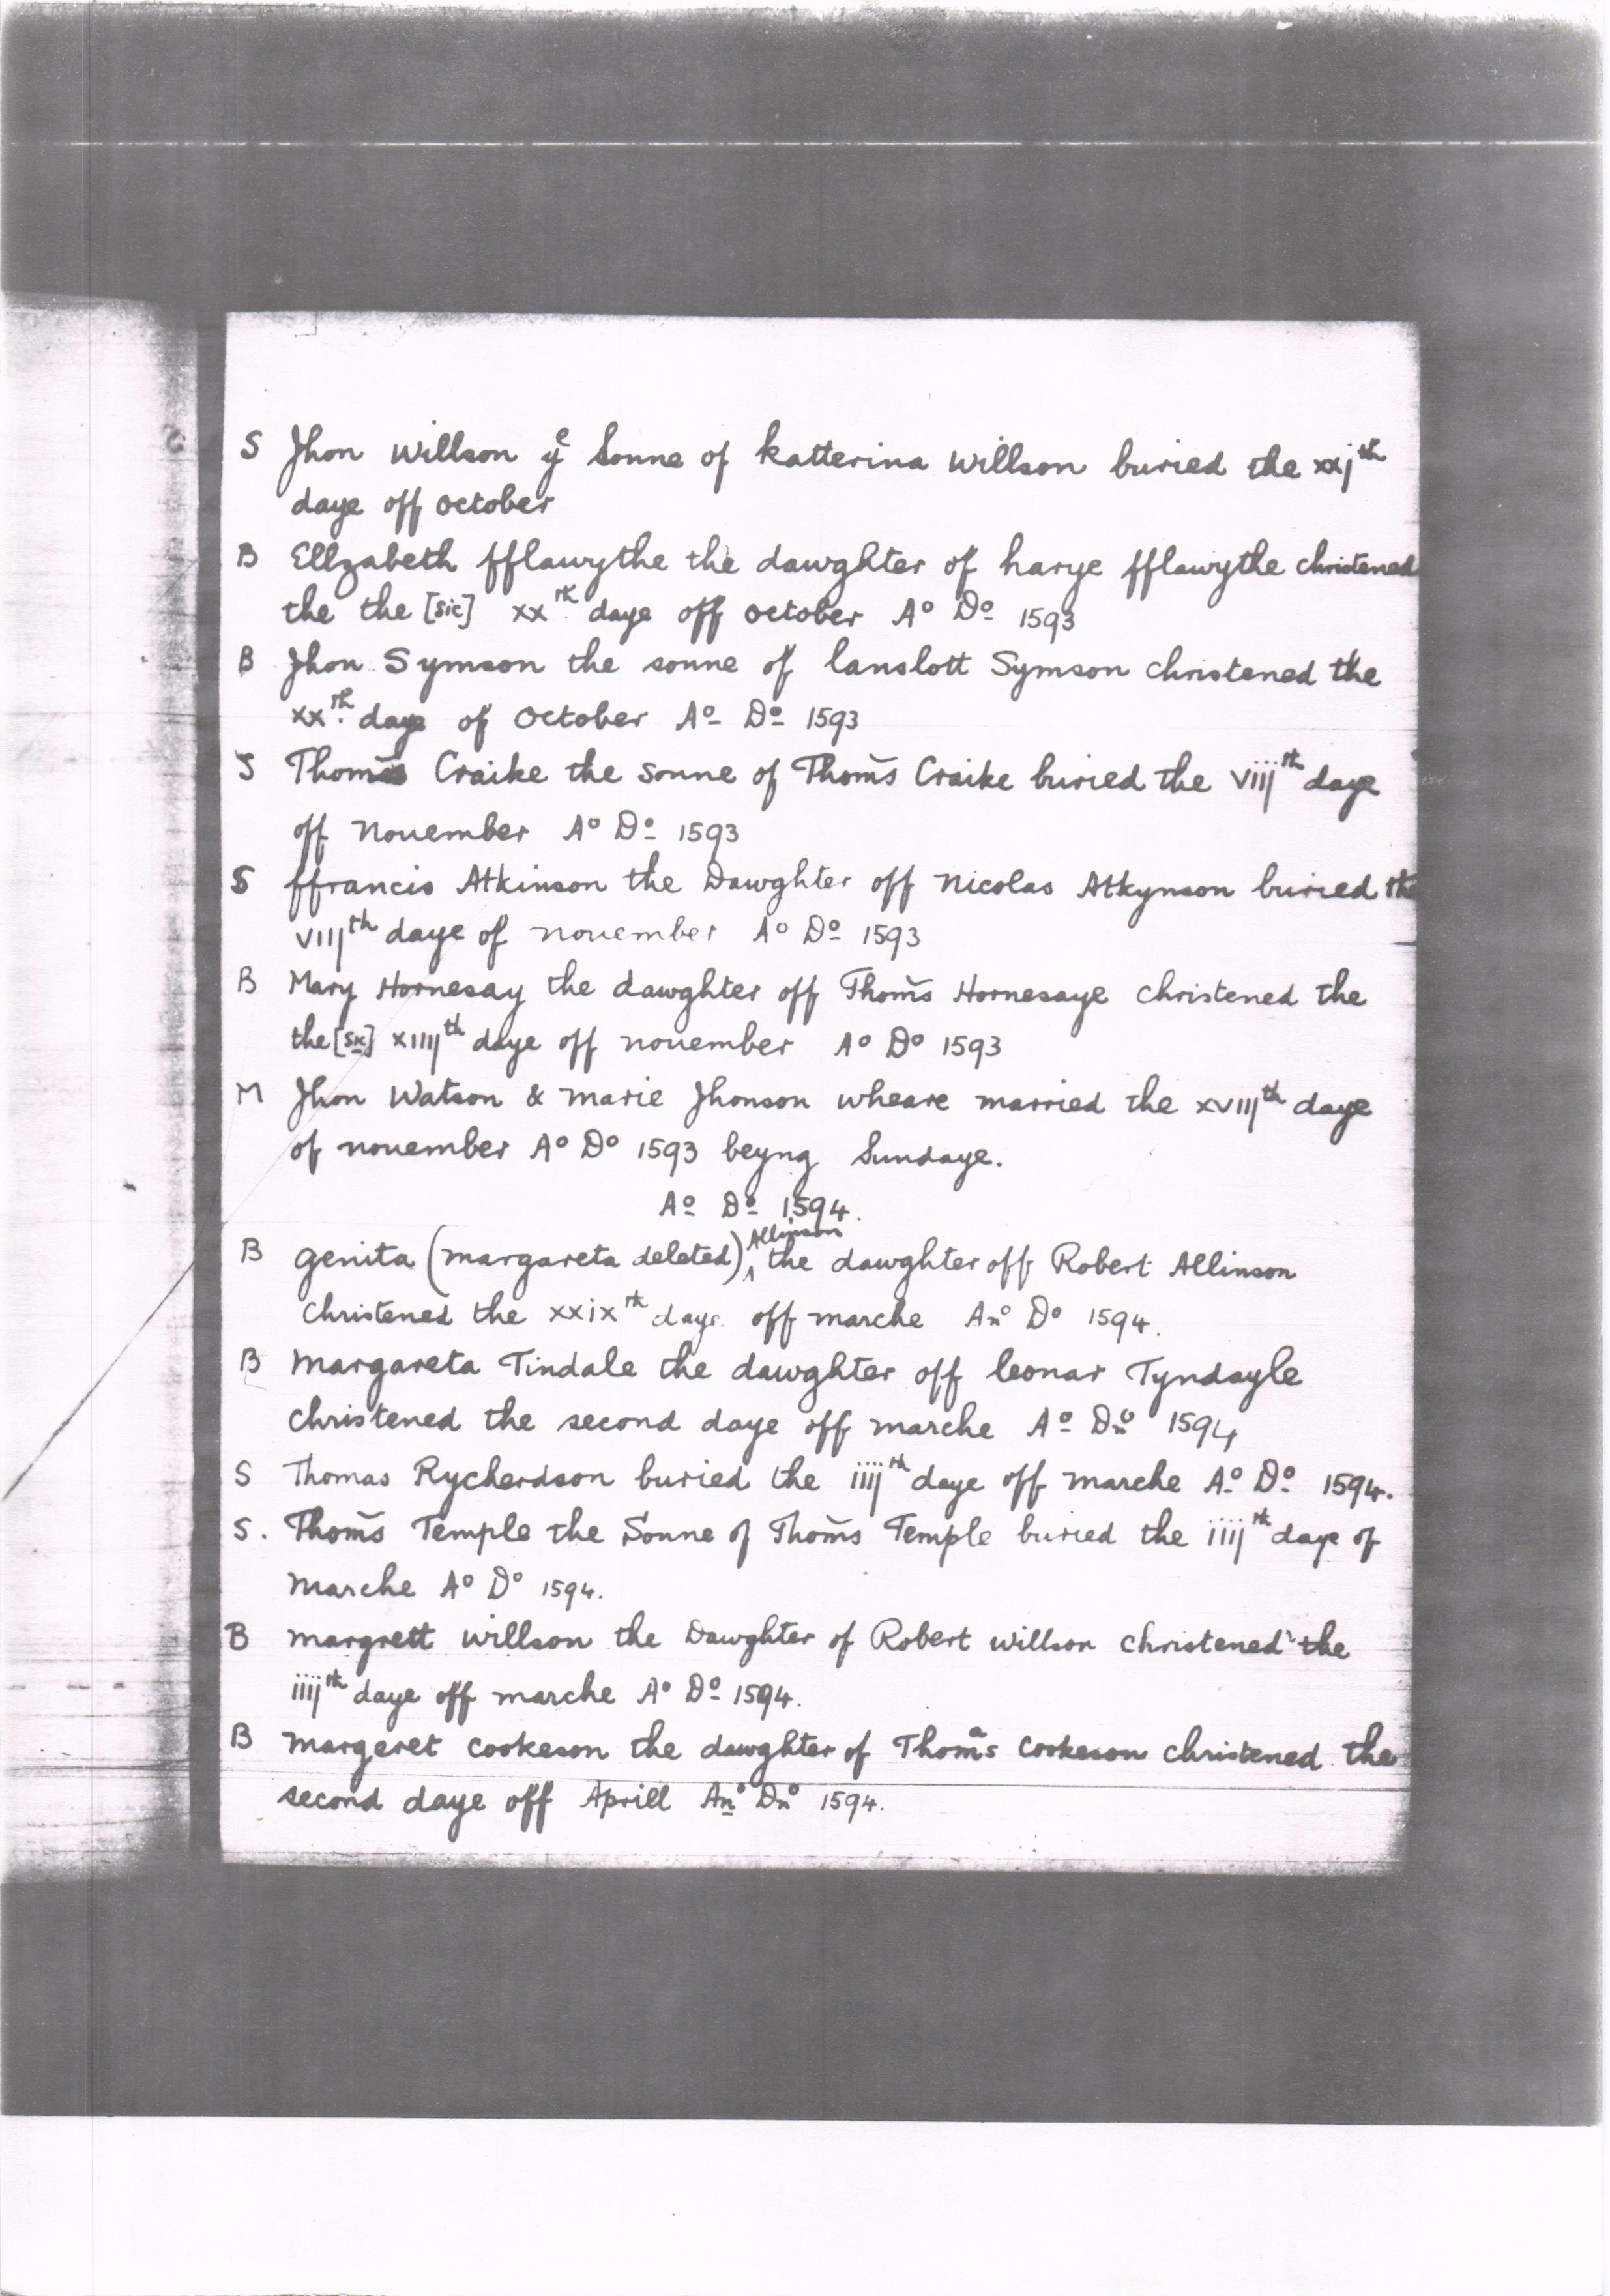 S Jhon Willson yᵉ Sonne of katterina Willson buried the xxjᵗʰ
daye off october
B Ellzabeth fflawythe the dawghter of harye fflawythe christened
the the [sic] xxᵗʰ daye off october A° D° 1593
B Jhon Symson the sonne of lanslott Symson christened the
xxᵗʰ daye of October A° D° 1593
S Thom̃s Craike the sonne of Thom̃s Craike buried the viijᵗʰ daye
off november A° D° 1593
S ffrancis Atkinson the Dawghter off Nicolas Atkynson buried the
viijᵗʰ daye of november A° D° 1593
B Mary Hornesay the dawghter off Thom̃s Hornesaye christened the
the [sic] xiiijᵗʰ daye off november A° D° 1593
M Jhon Watson & marie Jhonson wheare married the xviijᵗʰ daye
of november A° D° 1593 beyng Sundaye.
A° D° 1594.
B genita (margareta deleted) ^Allinson the dawghter off Robert Allinson
christened the xxixᵗʰ daye off marche An° D° 1594.
B margareta Tindale the dawghter off leonar Tyndayle
christened the second daye off marche A° Dn° 1594
S Thomas Rycherdson buried the iiijᵗʰ daye off marche A° D° 1594.
S. Thom̃s Temple the Sonne of Thom̃s Temple buried the iiijᵗʰ daye of
marche A° D° 1594.
B margrett willson the Dawghter of Robert willson christened the
iiijᵗʰ daye off marche A° D° 1594.
B margeret cookeson the dawghter of Thomᵃs cookeson christened the
second daye off Aprill An° Dn° 1594.